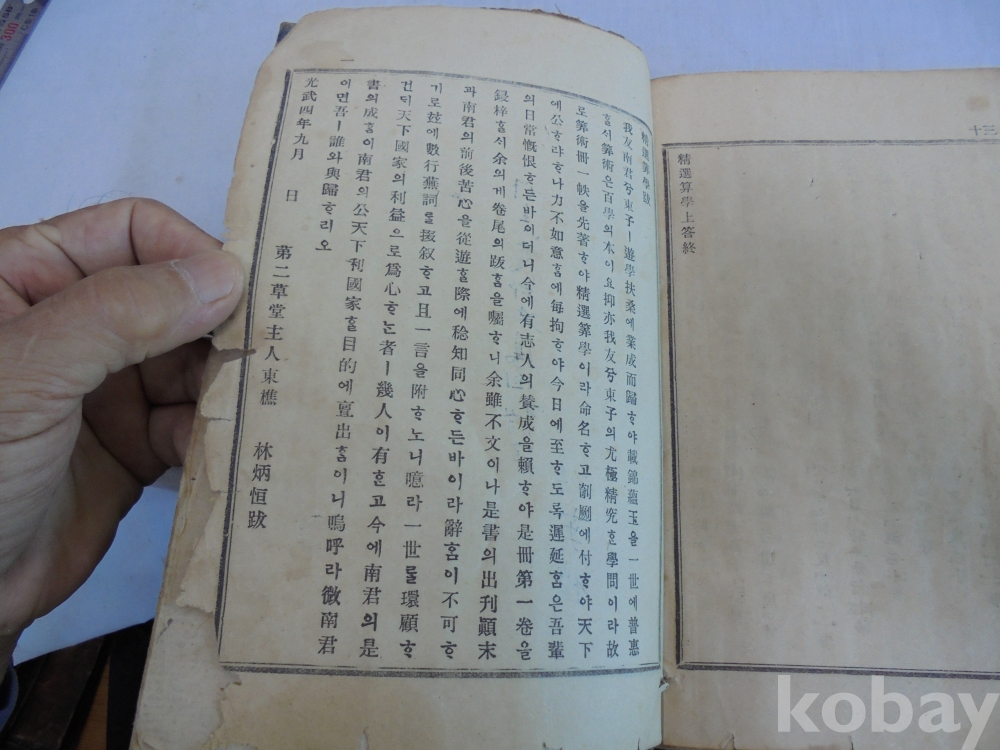 三十
精選算學上答終
一
精選算學跋
我友南君兮東子ㅣ遊學扶桑에業成而歸ᄒᆞ야載錦蘊玉을一世에普惠
ᄒᆞᆯᄉᆡ算術은百學의本이요抑亦我友兮東子의尤極精究ᄒᆞᆫ學問이라故
로算術冊一帙을先著ᄒᆞ야精選算學이라命名ᄒᆞ고剞劂에付ᄒᆞ야天下
에公ᄒᆞ랴ᄒᆞ나力不如意ᄒᆞᆷ에每拘ᄒᆞ야今日에至ᄒᆞ도록遲延ᄒᆞᆷ은吾輩
의日常慨恨ᄒᆞ든바이더니今에有志人의賛成을賴ᄒᆞ야是冊第一卷을
鋟梓ᄒᆞᆯᄉᆡ余의게卷尾의跋ᄒᆞᆷ을囑ᄒᆞ니余雖不文이나是書의出刊顚末
과南君의前後苦心을從遊ᄒᆞᆯ際에稔知同心ᄒᆞ든바이라辭ᄒᆞᆷ이不可ᄒᆞ
기로玆에數行蕪詞ᄅᆞᆯ接叙ᄒᆞ고且一言을附ᄒᆞ노니噫라一世ᄅᆞᆯ環顧ᄒᆞ
건ᄃᆡ天下國家의利益으로爲心ᄒᆞᄂᆞᆫ者ㅣ幾人이有ᄒᆞᆫ고今에南君의是
書의成ᄒᆞᆷ이南君의公天下利國家ᄒᆞᆯ目的에亶出ᄒᆞᆷ이니嗚呼라微南君
이면吾ㅣ誰와與歸ᄒᆞ리오
光武四年九月　日
第二草堂主人東樵　林炳恒跋
kobay
300